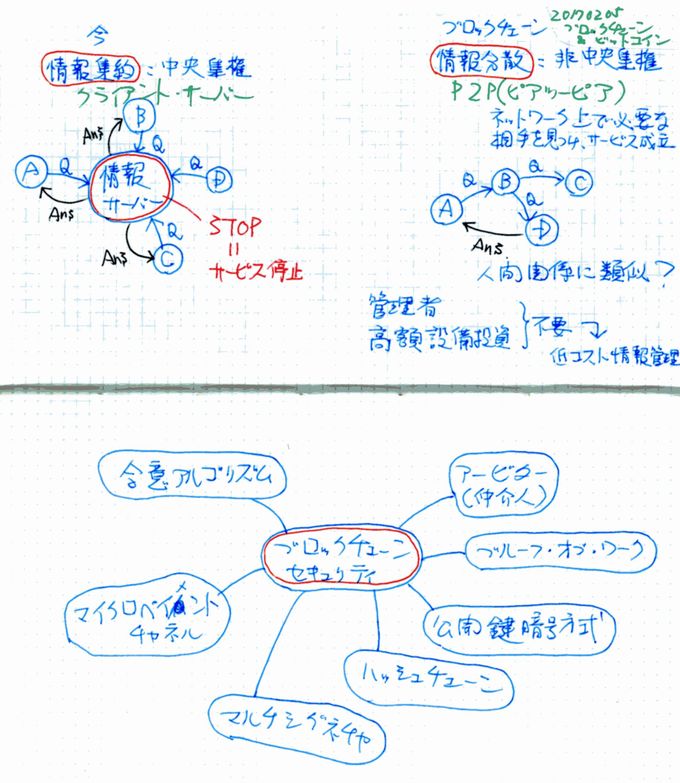 今
情報集約：中央集権
クライアント・サーバー
B
Ans
Q
A
Q
情報
サーバー
Q
D
Ans
Ans
Q
C
STOP
=
サービス停止
ブロックチェーン
20170205
ブロックチェーン
&ビットコイン
情報分散：非中央集権
P2P(ピアツーピア)
ネットワーク上で必要な
相手を見つけ、サービス成立
A
Q
B
Q
C
Q
D
Ans
人間関係に類似?
管理者
高額設備投資
不要
低コスト情報管理
合意アルゴリズム
アービター
(仲介人)
ブロックチェーン
セキュリティ
プルーフ・オブ・ワーク
マイクロペイメント
チャネル
公開鍵暗号方式
ハッシュチェーン
マルチシグネチャ